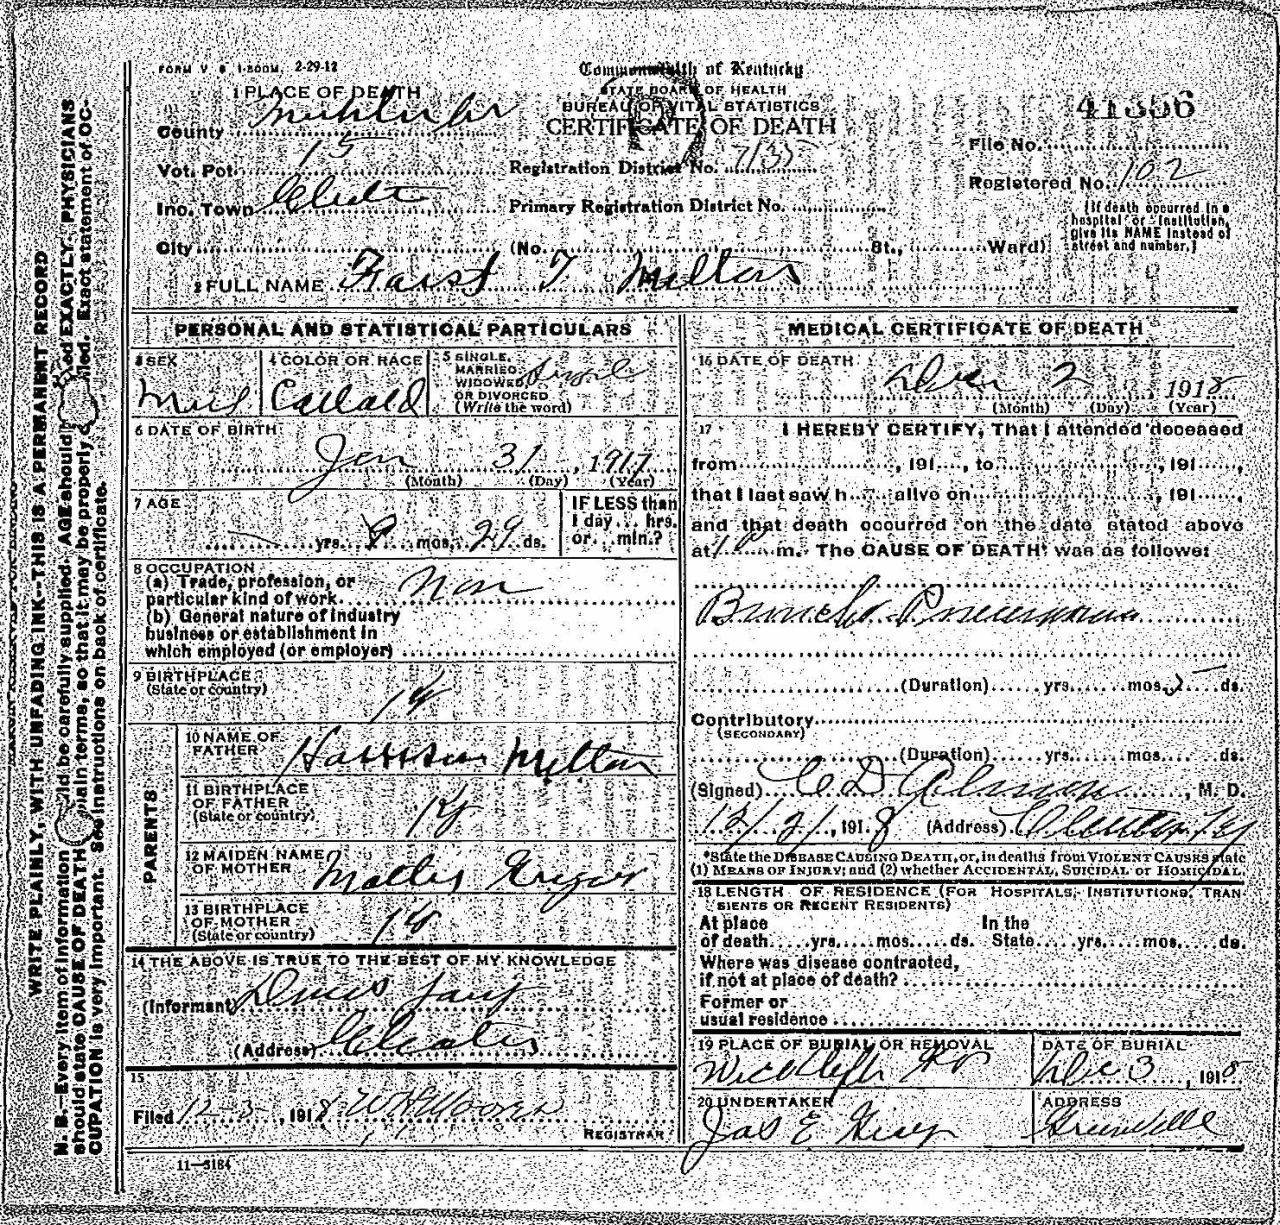 FORM V S 1-500M. 2-29-12
Commonwealth of Kentucky
STATE BOARD OF HEALTH
BUREAU OF VITAL STATISTICS
CERTIFICATE OF DEATH
41356
1 PLACE OF DEATH
County
Vot. Pct. 15
Registration District No. 7135
File No.
Registered No. 102
Inc. Town
Primary Registration District No.
(If death occurred in a hospital or institution, give its NAME instead of street and number.)
City (No. St., Ward)
2 FULL NAME T Milton
PERSONAL AND STATISTICAL PARTICULARS
3 SEX
4 COLOR OR RACE
5 SINGLE, MARRIED, WIDOWED OR DIVORCED (Write the word) Single
6 DATE OF BIRTH
Jan 31, 1917
(Month) (Day) (Year)
7 AGE
yrs. mos. 29 ds.
IF LESS than 1 day... hrs. or...min.?
8 OCCUPATION
(a) Trade, profession, or particular kind of work. Non
(b) General nature of industry business or establishment in which employed (or employer)
9 BIRTHPLACE
(State or country)
Ky
10 NAME OF FATHER Harrison Milton
11 BIRTHPLACE OF FATHER (State or country) Ky
12 MAIDEN NAME OF MOTHER
13 BIRTHPLACE OF MOTHER (State or country) Ky
PARENTS
14 THE ABOVE IS TRUE TO THE BEST OF MY KNOWLEDGE
(Informant)
(Address) Cleaton
15
Filed 12-3-, 1918 W H Moore
REGISTRAR
11-3184
MEDICAL CERTIFICATE OF DEATH
16 DATE OF DEATH
Dec 2, 1918
(Month) (Day) (Year)
17 I HEREBY CERTIFY, That I attended deceased
from, 191, to, 191,
that I last saw h alive on, 191,
and that death occurred on the date stated above
at m. The CAUSE OF DEATH* was as follows:
Broncho Pneumonia
(Duration) yrs. mos. 5 ds.
Contributory
(SECONDARY)
(Duration) yrs. mos. ds.
(Signed) C D, M. D.
12/2/, 1918 (Address) Cleaton Ky
*State the DISEASE CAUSING DEATH, or, in deaths from VIOLENT CAUSES state
(1) MEANS OF INJURY; and (2) whether ACCIDENTAL, SUICIDAL or HOMICIDAL.
18 LENGTH OF RESIDENCE (FOR HOSPITALS, INSTITUTIONS, TRANSIENTS OR RECENT RESIDENTS)
At place of death yrs. mos. ds. In the State yrs. mos. ds.
Where was disease contracted,
if not at place of death?
Former or
usual residence
19 PLACE OF BURIAL OR REMOVAL
DATE OF BURIAL
Dec 3, 1918
20 UNDERTAKER
Jas E
ADDRESS
Greenville
WRITE PLAINLY, WITH UNFADING INK--THIS IS A PERMANENT RECORD
N. B.--Every item of information should be carefully supplied. AGE should be stated EXACTLY. PHYSICIANS
should state CAUSE OF DEATH in plain terms, so that it may be properly classified. Exact statement of OC-
CUPATION is very important. See instructions on back of certificate.